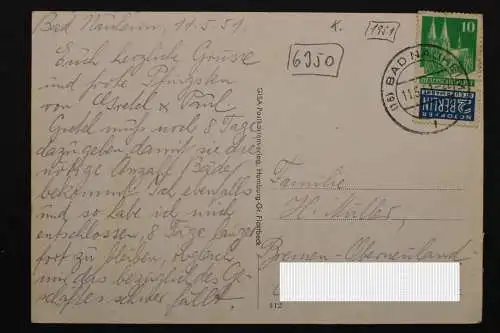 Bad Nauheim, 11.5.51.
Euch herzliche Grüsse
und frohe Pfingsten
von Gretel & Paul
Gretel muß noch 8 Tage
dazugeben, damit sie die
nötige Anzahl Bäder
bekommt. Ich ebenfalls
und so habe ich mich
entschlossen, 8 Tage länger
fort zu bleiben, obgleich
mir das bezüglich des Ge-
schäftes schwer fällt.
K.
1951
6350
10
(16) BAD NAUHEIM
11.5.
NOTOPFER
2 BERLIN
STEUERMARKE
GISA-Postkartenverlag, Hamburg-Gr. Flottbeck
Familie
H. Müller,
Bremen-Oberneuland
412